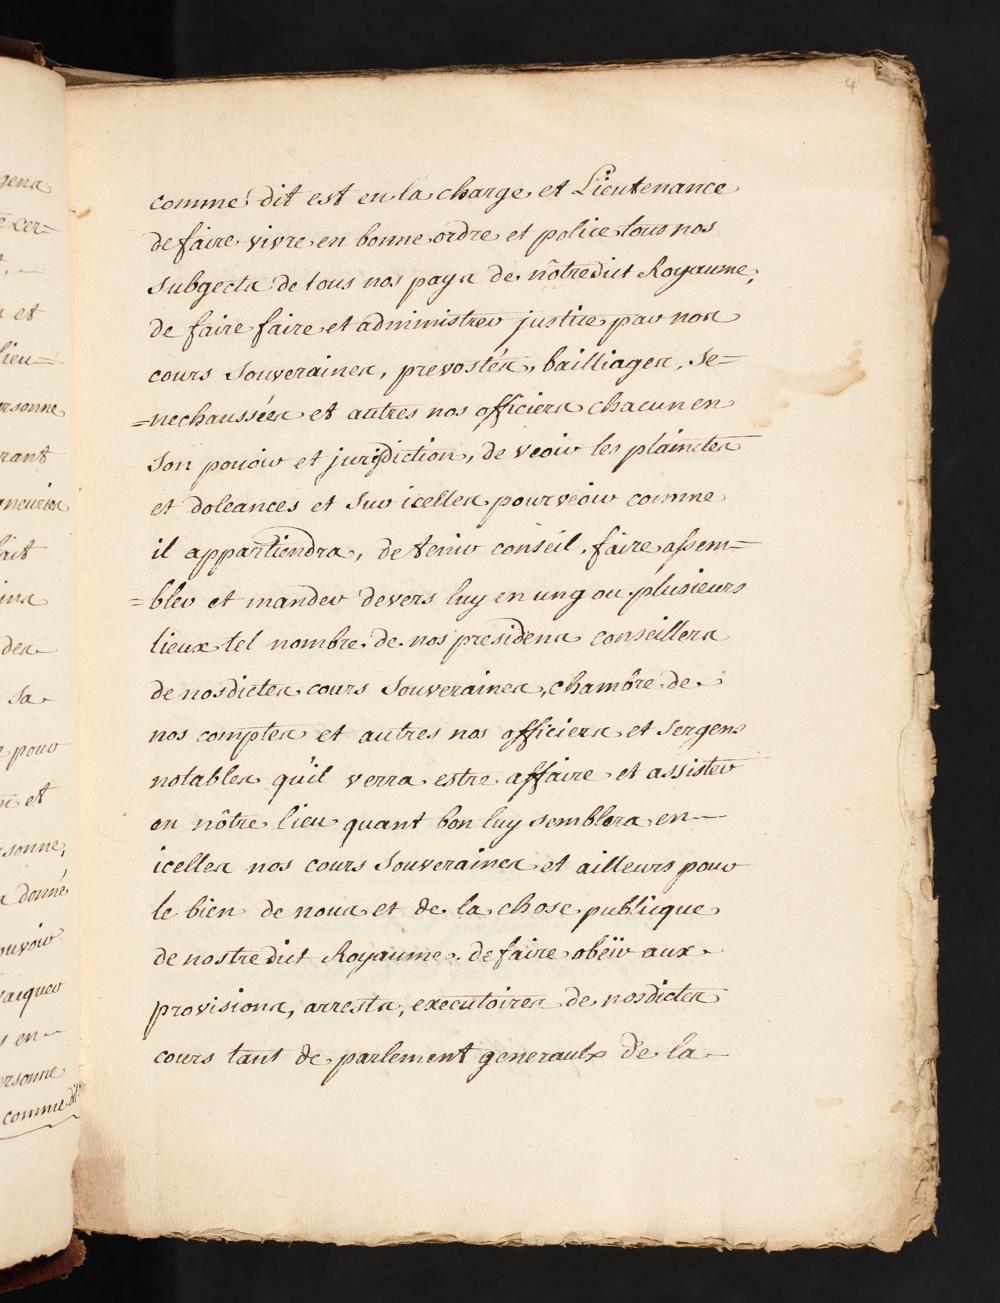 4
comme dit est en la charge et Lieutenance
de faire vivre en bonne ordre et police tous nos
subgects de tous nos pays de nôtredict Royaume,
de faire faire et administrer justice par nos
cours Souveraines, prevostés, bailliages, Se=
=nechaussées et autres nos officiers chacun en
son pouoir et jurisdiction, de veoir les plainctes
et doleances et sur icelles pourveoir comme
il appartiendra, de tenir conseil, faire assem=
=bler et mander devers luy en ung ou plusieurs
lieux tel nombre de nos presidens conseillers
de nosdictes cours Souveraines, chambre de
nos comptes et autres nos officiers et sergens
notables qu'il verra estre affaire et assister
en nôtre lieu quant bon luy semblera en
icelles nos cours Souveraines et ailleurs pour
le bien de nous et de la chose publicque
de nostredict Royaume. de faire obëir aux
provisions, arrests, executoires de nosdictes
cours tant de parlement generaulx de la
gens
cer=
et
lieu=
rsonne
rant
fait
des
sa
pour
et
sonne,
donné
ouvoir
en
ersonne
comme dit